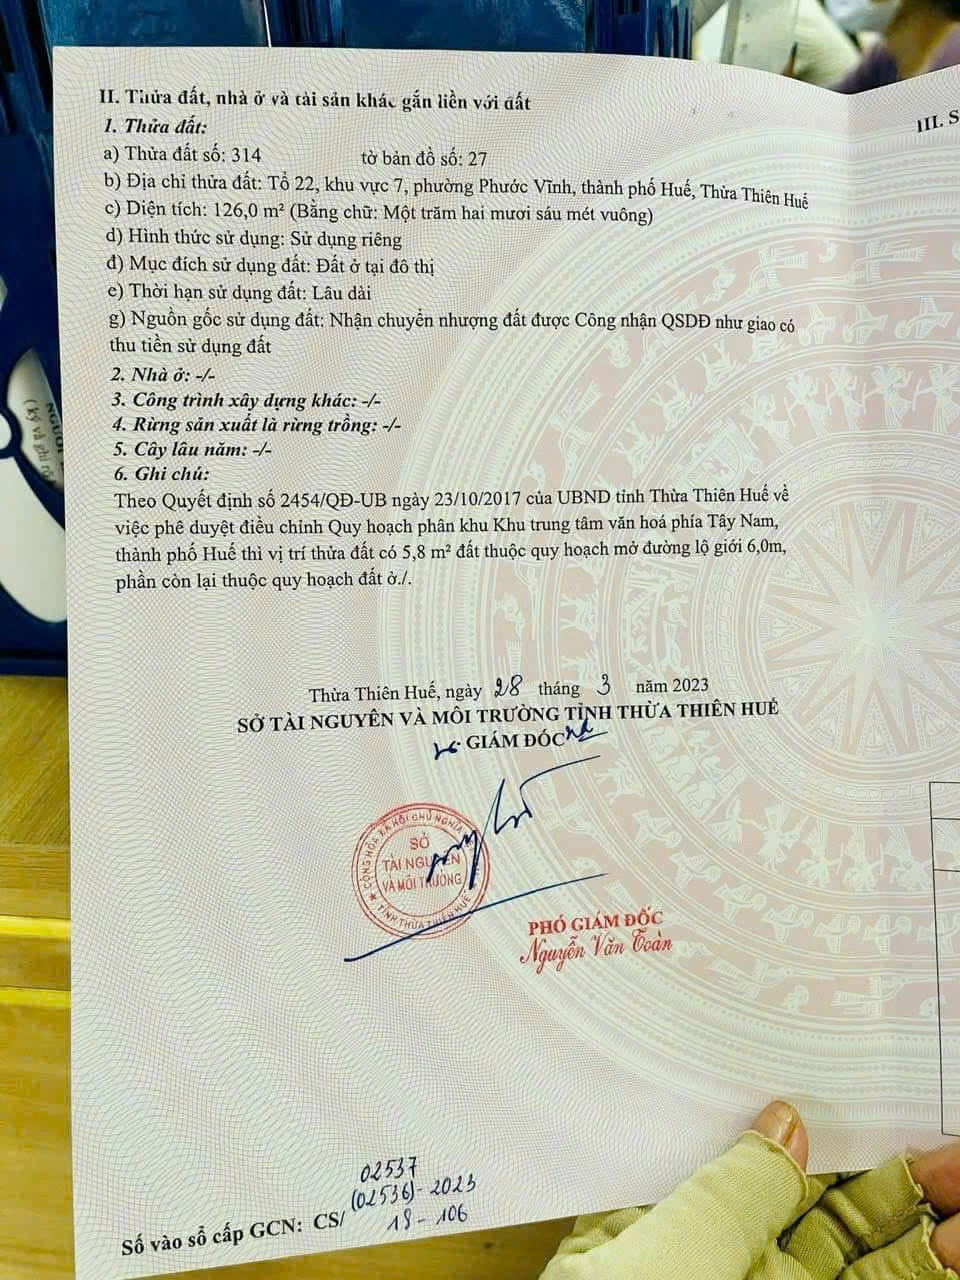 II. Thửa đất, nhà ở và tài sản khác gắn liền với đất
1. Thửa đất:
a) Thửa đất số: 314 tờ bản đồ số: 27
b) Địa chỉ thửa đất: Tổ 22, khu vực 7, phường Phước Vĩnh, thành phố Huế, Thừa Thiên Huế
c) Diện tích: 126,0 m² (Bằng chữ: Một trăm hai mươi sáu mét vuông)
d) Hình thức sử dụng: Sử dụng riêng
đ) Mục đích sử dụng đất: Đất ở tại đô thị
e) Thời hạn sử dụng đất: Lâu dài
g) Nguồn gốc sử dụng đất: Nhận chuyển nhượng đất được Công nhận QSDĐ như giao có
thu tiền sử dụng đất
2. Nhà ở: -/-
3. Công trình xây dựng khác: -/-
4. Rừng sản xuất là rừng trồng: -/-
5. Cây lâu năm: -/-
6. Ghi chú:
Theo Quyết định số 2454/QĐ-UB ngày 23/10/2017 của UBND tỉnh Thừa Thiên Huế về
việc phê duyệt điều chỉnh Quy hoạch phân khu Khu trung tâm văn hoá phía Tây Nam,
thành phố Huế thì vị trí thửa đất có 5,8 m² đất thuộc quy hoạch mở đường lộ giới 6,0m,
phần còn lại thuộc quy hoạch đất ở./.
Thừa Thiên Huế, ngày 28 tháng 3 năm 2023
SỞ TÀI NGUYÊN VÀ MÔI TRƯỜNG TỈNH THỪA THIÊN HUẾ
GIÁM ĐỐC
CỘNG HÒA XÃ HỘI CHỦ NGHĨA
SỞ
TÀI NGUYÊN
VÀ MÔI TRƯỜNG
TỈNH THỪA THIÊN HUẾ
PHÓ GIÁM ĐỐC
Nguyễn Văn Toàn
02537
Số vào sổ cấp GCN: CS/ (02536)-2023
18-106
III. S
(ký và ghi rõ